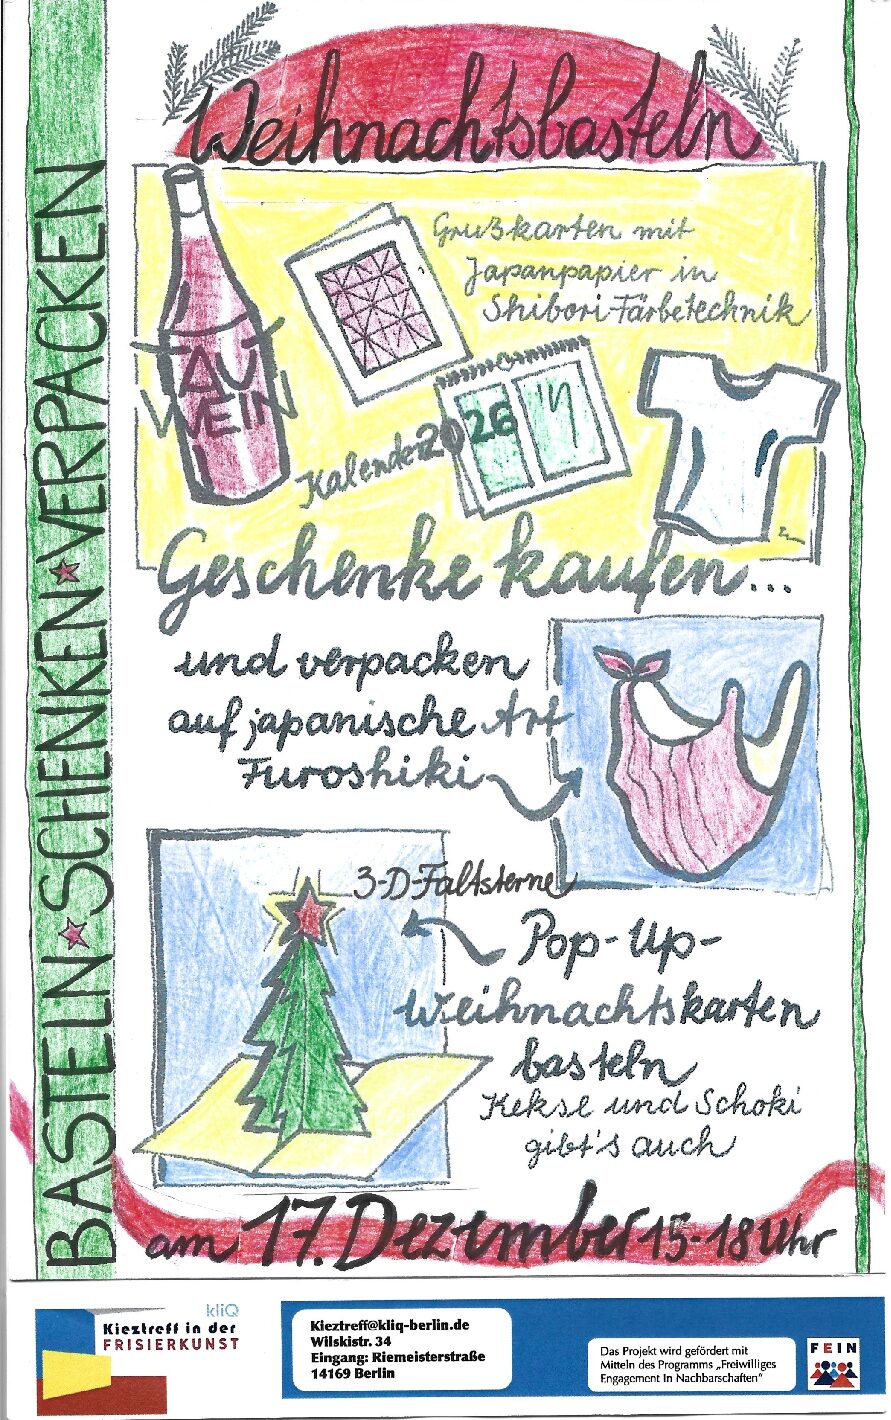 Weihnachtsbasteln
BASTELN ★ SCHENKEN ★ VERPACKEN
Grußkarten mit
Japanpapier in
Shibori-Färbetechnik
TAU
WEIN
Kalender 20
26
Geschenke kaufen...
und verpacken
auf japanische Art
Furoshiki
3-D-Faltsterne
Pop-Up-
Weihnachtskarten
basteln
Kekse und Schoki
gibt's auch
am 17. Dezember 15-18 Uhr
kliQ
Kieztreff in der
FRISIERKUNST
Kieztreff@kliq-berlin.de
Wilskistr. 34
Eingang: Riemeisterstraße
14169 Berlin
Das Projekt wird gefördert mit
Mitteln des Programms „Freiwilliges
Engagement In Nachbarschaften"
FEIN